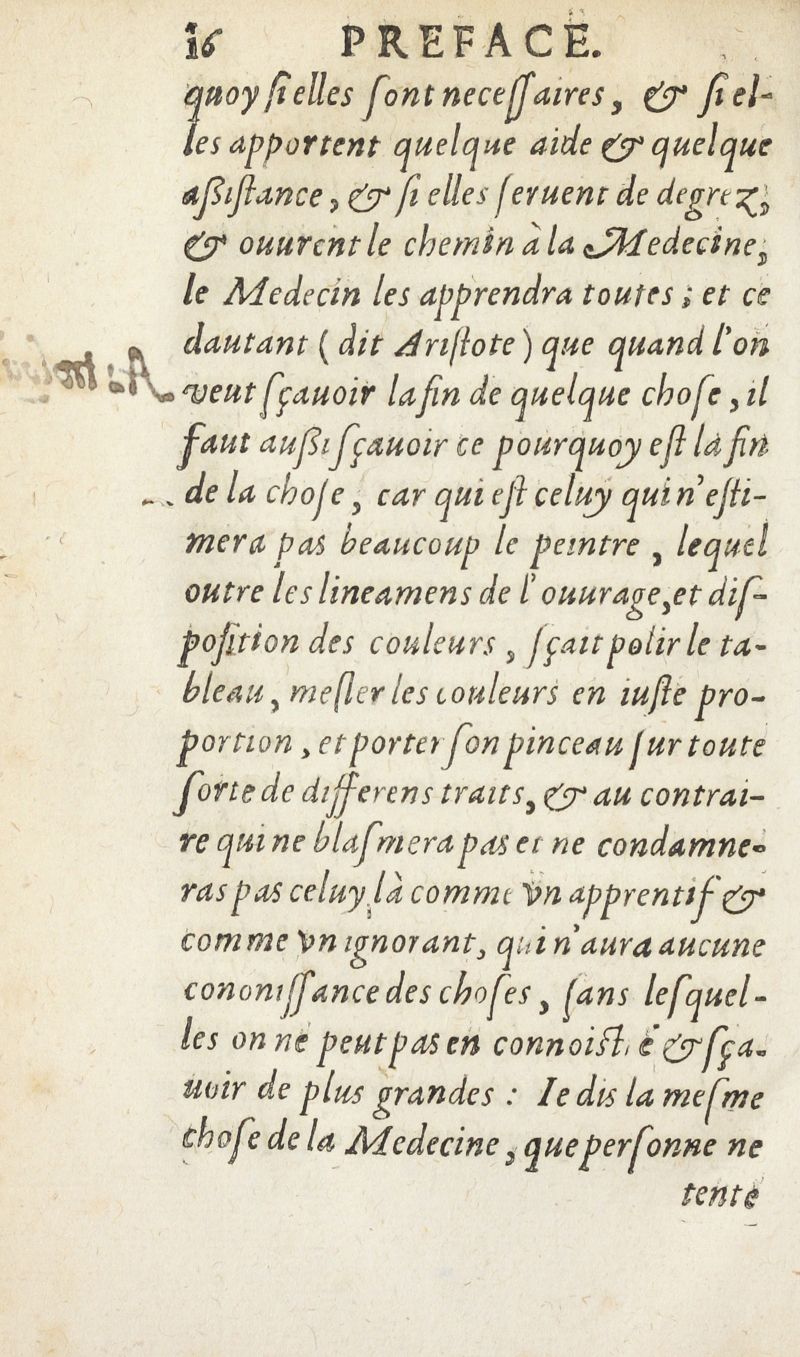 16 PREFACE.
quoy ſi elles ſont neceſſaires, & ſi el-
les apportent quelque aide & quelque
aßiſtance, & ſi elles ſeruent de degrez,
& ouurent le chemin à la Medecine,
le Medecin les apprendra toutes; et ce
dautant (dit Ariſtote) que quand l'on
veut ſçauoir la fin de quelque choſe, il
faut außi ſçauoir ce pourquoy eſt la fin
de la choſe, car qui eſt celuy qui n'eſti-
mera pas beaucoup le peintre, lequel
outre les lineamens de l'ouurage, et diſ-
poſition des couleurs, ſçait polir le ta-
bleau, meſler les couleurs en iuſte pro-
portion, et porter ſon pinceau ſur toute
ſorte de differens traits, & au contrai-
re qui ne blaſmera pas et ne condamne-
ras pas celuy là comme vn apprentif &
comme vn ignorant, qui n'aura aucune
cononiſſance des choſes, ſans leſquel-
les on ne peut pas en connoiſt e & ſça-
uoir de plus grandes: Ie dis la meſme
choſe de la Medecine, que perſonne ne
tente